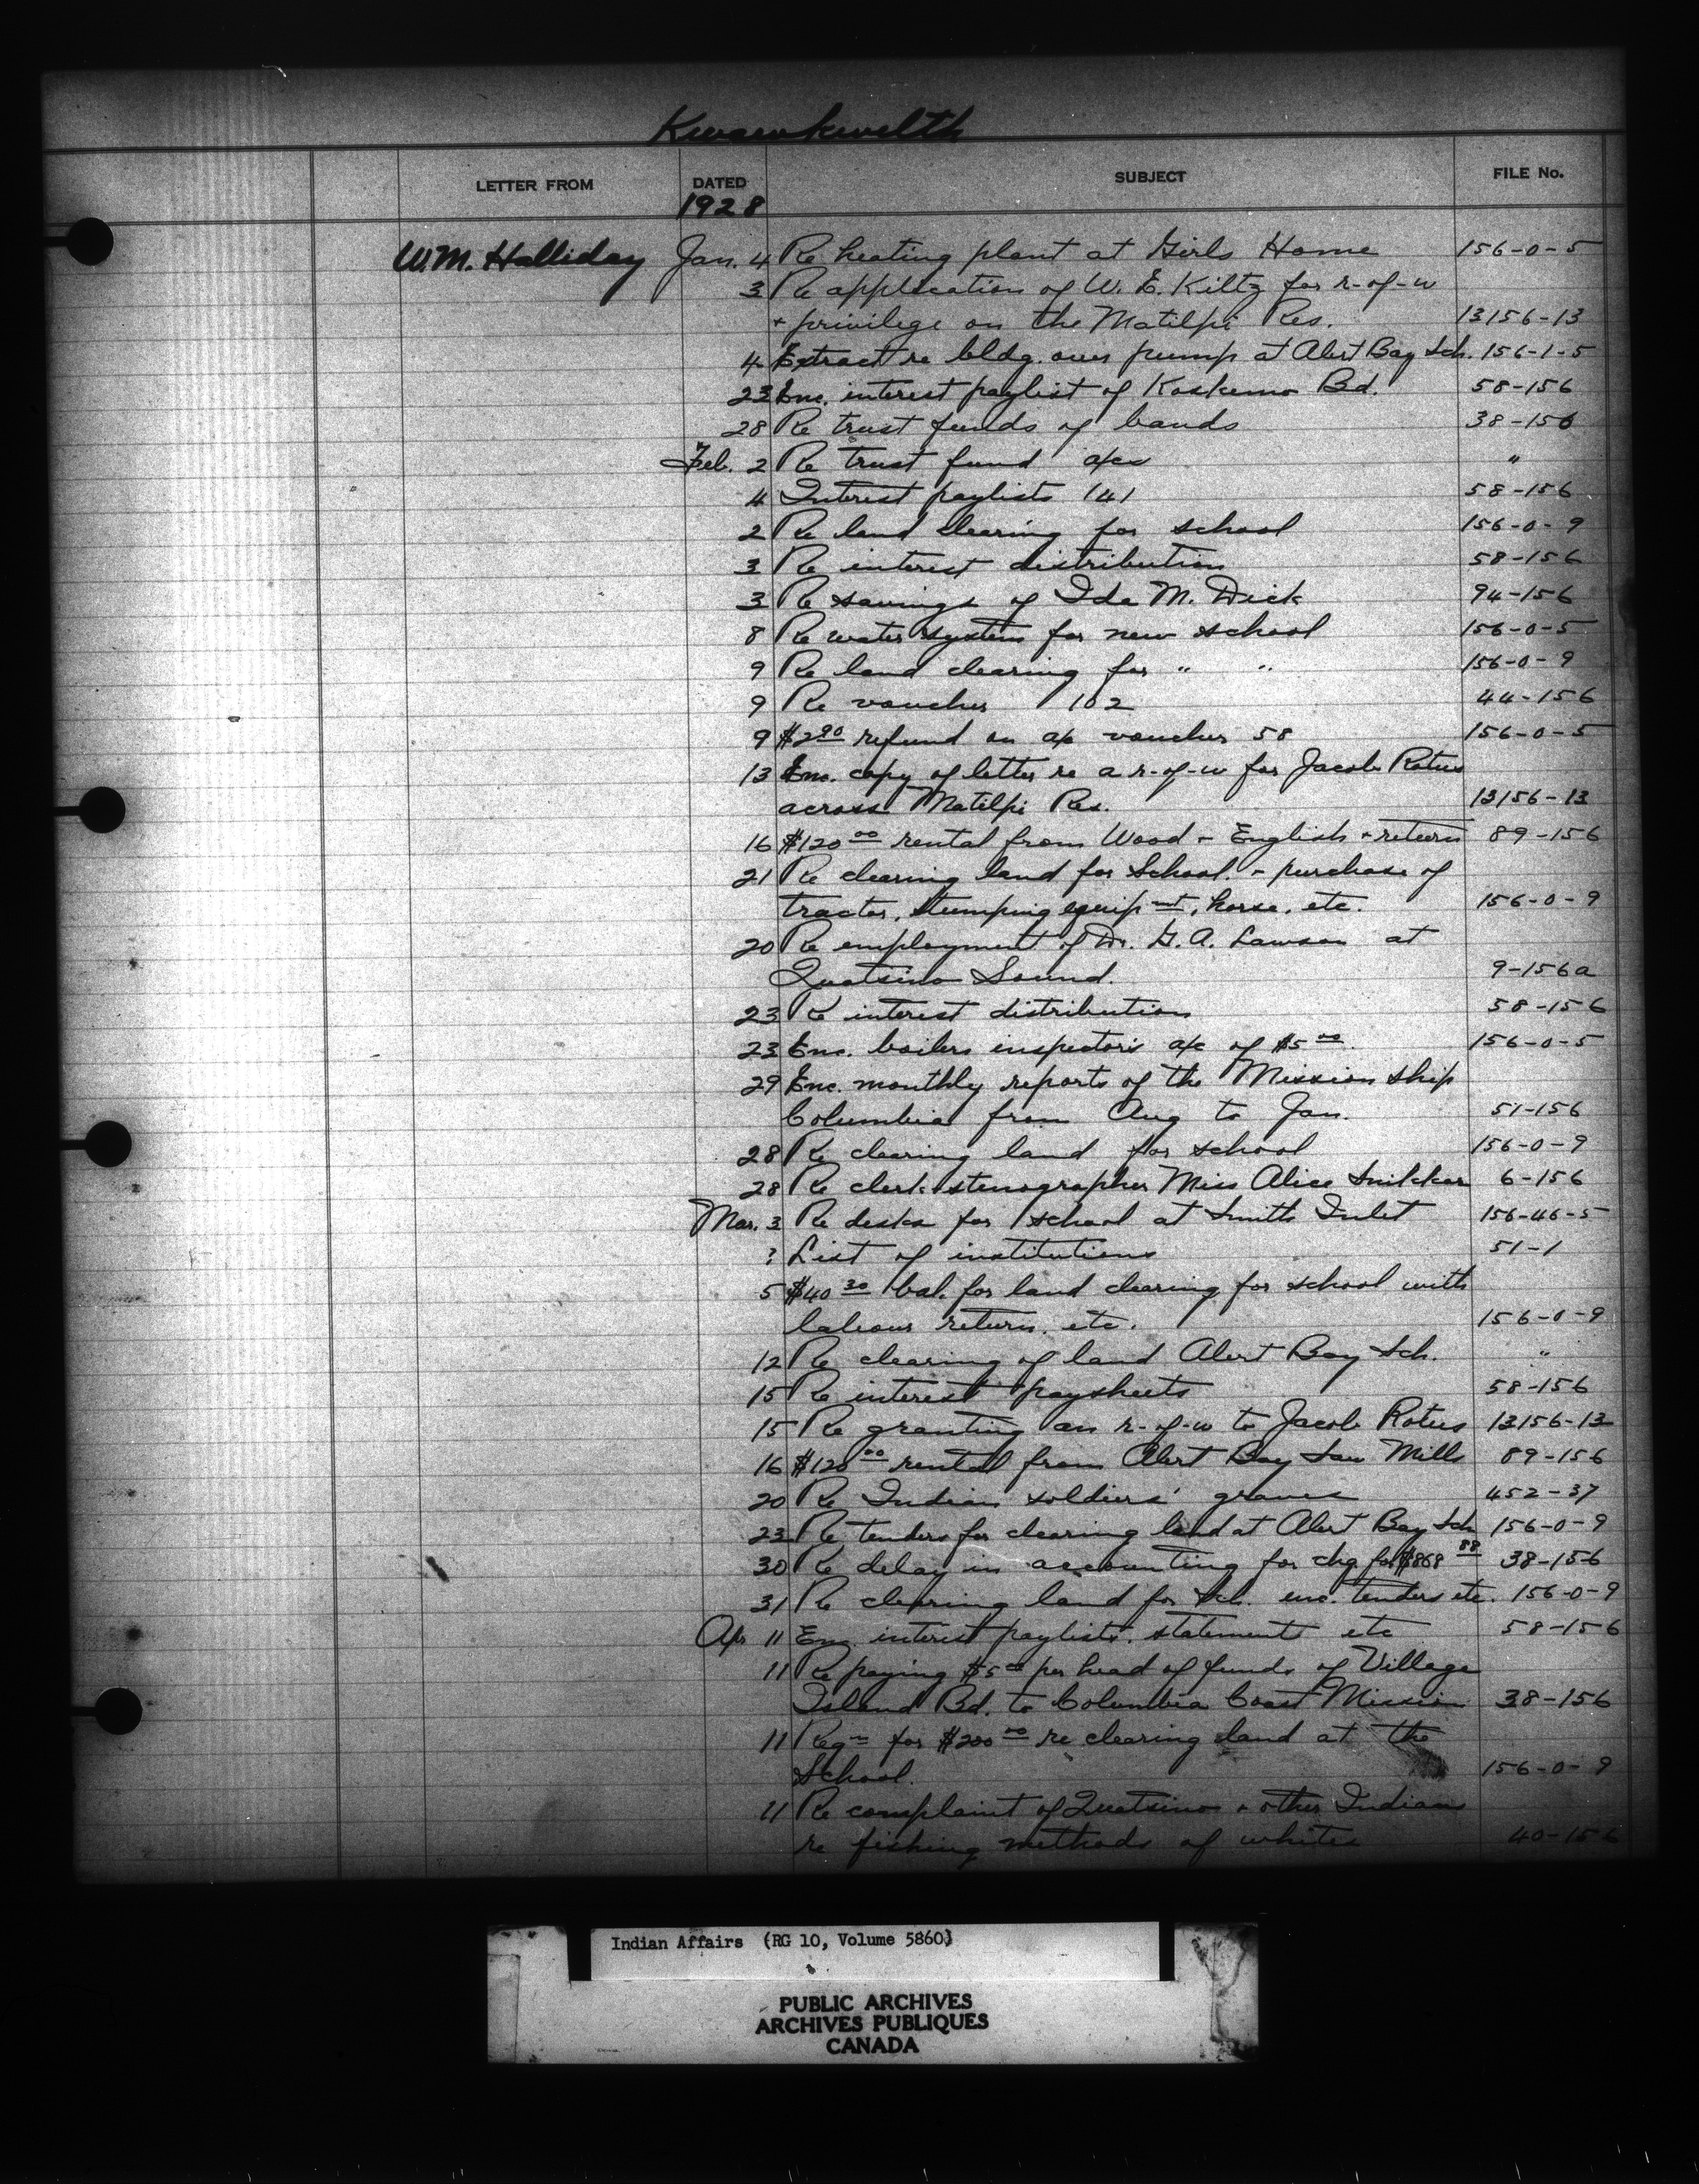 Kwawkwelth
LETTER FROM DATED SUBJECT FILE No.
1928
W.M. Halliday Jan. 4 Re heating plant at Girls Home 156-0-5
3 Re application of W. E. Kiltz for r-of-w
+ privilege on the Matilpi Res. 13156-13
4 Extract re bldg. over pump at Alert Bay Sch. 156-1-5
23 Enc. interest paylist of Koskemo Bd. 58-156
28 Re trust funds of bands 38-156
Feb. 2 Re trust fund a/cs "
4 Interest paylists (4) 58-156
2 Re land clearing for school 156-0-9
3 Re interest distribution 58-156
3 Re savings of Ida M. Dick 94-156
8 Re water system for new school 156-0-5
9 Re land clearing for " " 156-0-9
9 Re voucher 102 44-156
9 $2.90 refund on a/c voucher 58 156-0-5
13 Enc. copy of letter re a r-of-w for Jacob Roters
across Matilpi Res. 13156-13
16 $120.00 rental from Wood + English + return 89-156
21 Re clearing land for School + purchase of
tractor, stumping equipmt, horse, etc. 156-0-9
20 Re employment of Dr. G. A. Lawson at
Quatsino Sound. 9-156a
23 Re interest distribution 58-156
23 Enc. boilers inspector's a/c of $5.00. 156-0-5
29 Enc. monthly reports of the Mission ship
Columbia from Aug to Jan. 51-156
28 Re clearing land for school 156-0-9
28 Re clerk-stenographer Miss Alice 6-156
Mar. 3 Re desks for school at Smith Inlet 156-46-5
? List of institutions 51-1
5 $40.30 bal. for land clearing for school with
labour return, etc. 156-0-9
12 Re clearing of land Alert Bay Sch. "
15 Re interest paysheets 58-156
15 Re granting an r-of-w to Jacob Roters 13156-13
16 $120.00 rental from Alert Bay Saw Mills 89-156
20 Re Indian soldiers' graves 452-37
23 Re tenders for clearing land at Alert Bay Sch 156-0-9
30 Re delay in accounting for chq for $868.88 38-156
31 Re clearing land for Sch. enc. tenders etc. 156-0-9
Apr 11 Enc. interest paylists, statements etc 58-156
11 Re paying $5.00 per head of funds of Village
Island Bd. to Columbia Coast Mission 38-156
11 Reqn for $200.00 re clearing land at the
School. 156-0-9
11 Re complaint of Quatsino + other Indians
re fishing methods of whites 40-156
Indian Affairs (RG 10, Volume 5860)
PUBLIC ARCHIVES
ARCHIVES PUBLIQUES
CANADA